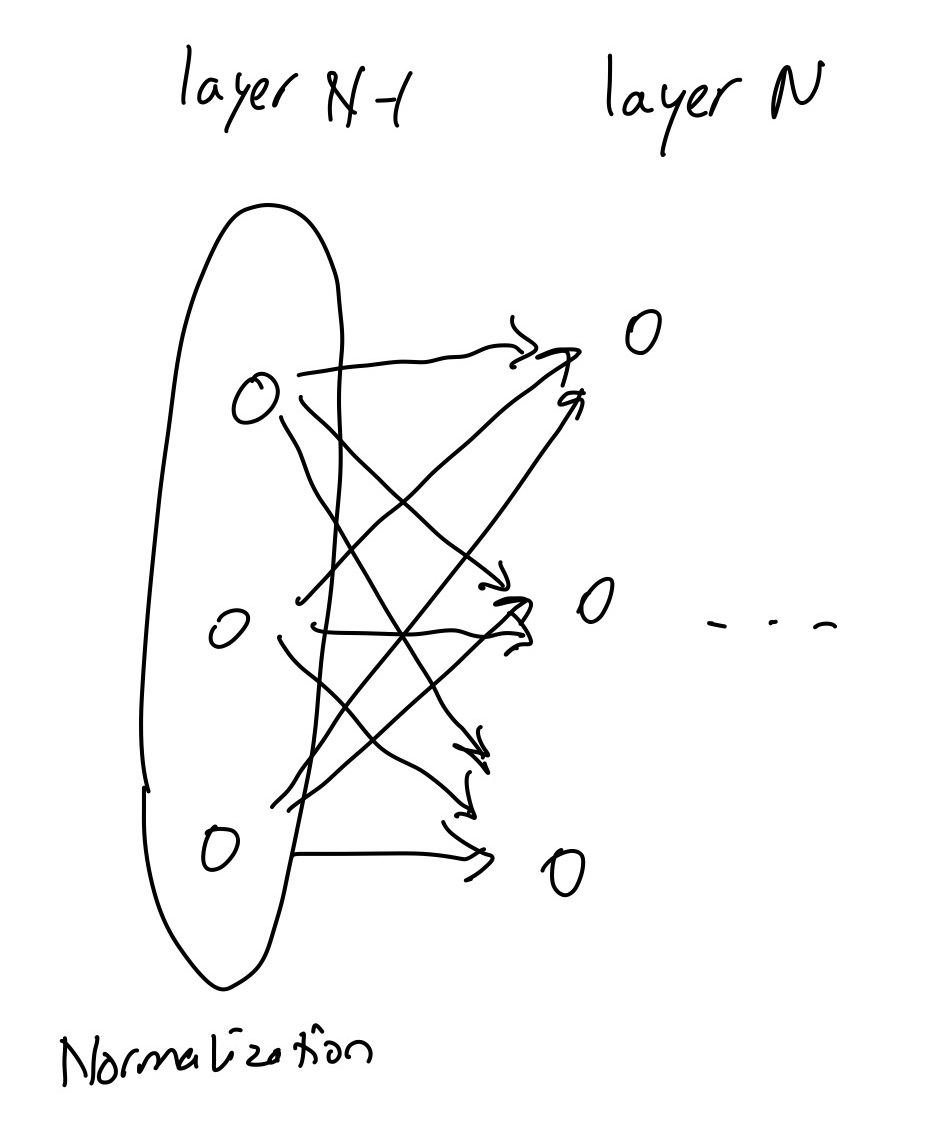 layer N-1
layer N
Normalization